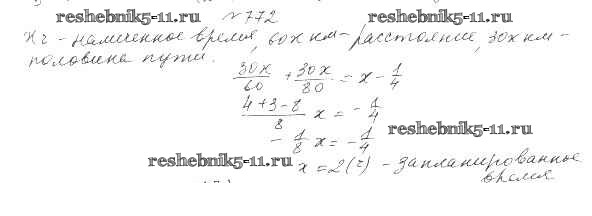 reshebnik5-11.ru № 772 reshebnik5-11.ru
x ч - намеченное время, 60x км - расстояние, 30x км -
половина пути.
30x/60 + 30x/80 = x - 1/4
(4+3-8)/8 x = -1/4
-1/8 x = -1/4 reshebnik5-11.ru
reshebnik5-11.ru x = 2(ч) - запланированное
время